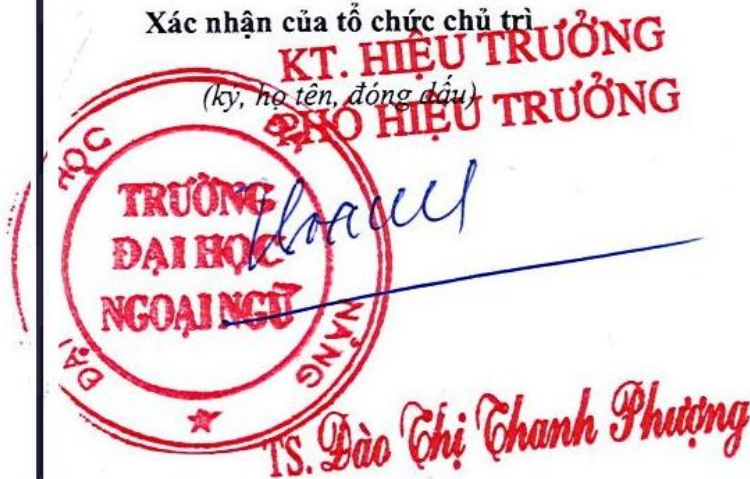 Xác nhận của tổ chức chủ trì
KT. HIỆU TRƯỞNG
(ký, họ tên, đóng dấu)
PHÓ HIỆU TRƯỞNG
ĐẠI HỌC ĐÀ NẴNG
TRƯỜNG
ĐẠI HỌC
NGOẠI NGỮ
TS. Đào Thị Thanh Phượng